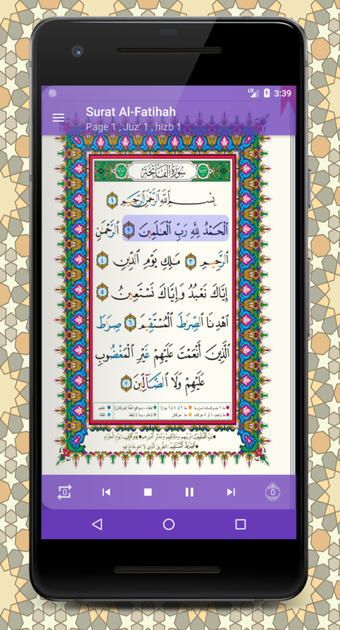 3:39
Surat Al-Fatihah
Page 1 , Juz' 1 , hizb 1
سُورَةُ الْفَاتِحَةِ
بِسْمِ اللَّهِ الرَّحْمَٰنِ الرَّحِيمِ ١
الْحَمْدُ لِلَّهِ رَبِّ الْعَالَمِينَ ٢ الرَّحْمَٰنِ
الرَّحِيمِ ٣ مَالِكِ يَوْمِ الدِّينِ ٤
إِيَّاكَ نَعْبُدُ وَإِيَّاكَ نَسْتَعِينُ ٥
اهْدِنَا الصِّرَاطَ الْمُسْتَقِيمَ ٦ صِرَاطَ
الَّذِينَ أَنْعَمْتَ عَلَيْهِمْ غَيْرِ الْمَغْضُوبِ
عَلَيْهِمْ وَلَا الضَّالِّينَ ٧
0 0